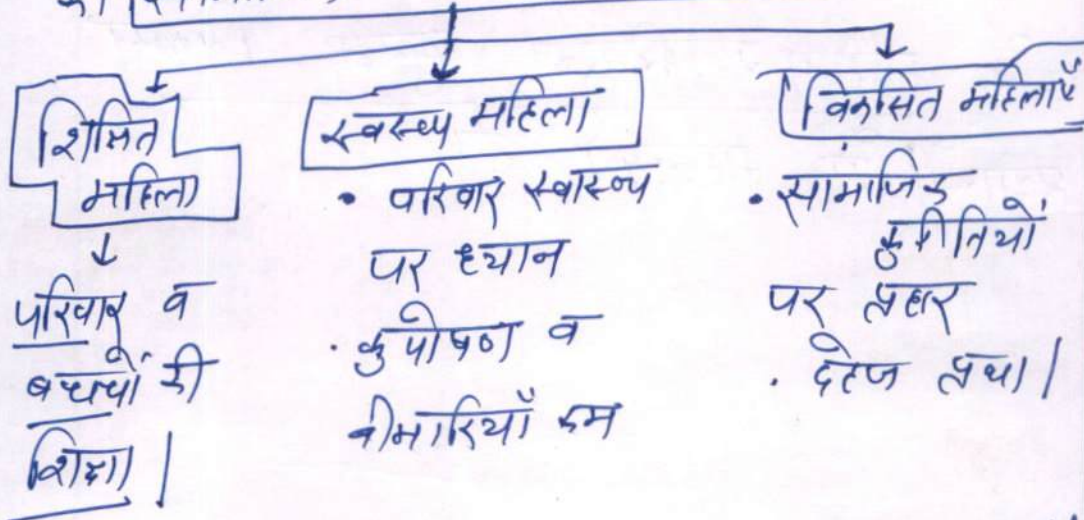 शिक्षित
महिला
↓
परिवार व
बच्चों की
शिक्षा|
स्वस्थ महिला
• परिवार स्वास्थ्य
पर ध्यान
• कुपोषण व
बीमारियाँ कम
विकसित महिलाएँ
• सामाजिक
कुरीतियों
पर प्रहार
• दहेज प्रथा|